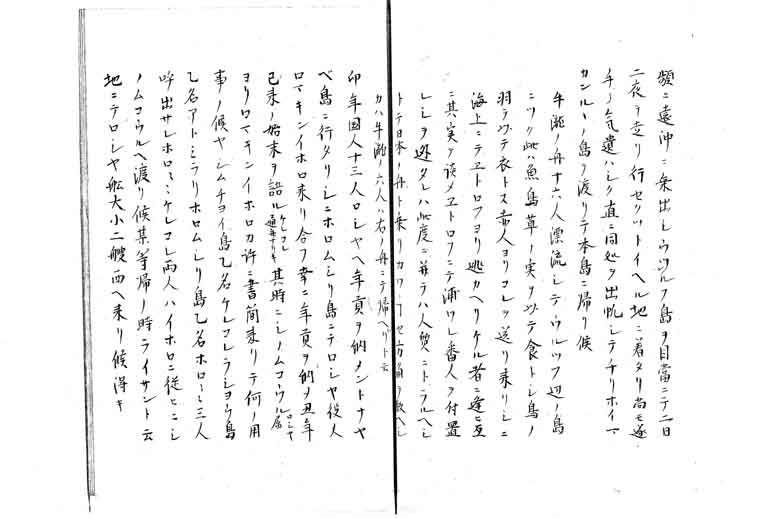 頻ニ遠沖ニ乗出シウルツフ島ヲ目當ニテ二日
二夜ヲ走リ行セクツトイヘル地ニ着タリ尚モ逐
手ノ気遣ハシク直ニ同処ヲ出帆シテチリホイマ
カンルノ島ヲ渡リテ本島ニ帰リ候
牛瀧ノ舟十六人漂流シテウルツフ辺ノ島
ニツク此ハ魚島草ノ実ヲ以テ食トシ鳥ノ
羽ヲ以テ衣トス赤人ヨリコレヲ送リ来リシニ
海上ニテヱトロフヨリ逃カヘリケル者ニ逢ヒ互
ニ其実ヲ談メヱトロフニテ浦ワシ番人ヲ付置
レシヲ逃タレハ此度ニ並テハ人質ニトラルヘシ
トテ日本ノ舟ト乗リカワ
カハ牛瀧ノ六人ハ右ノ舟ニテ帰ヘリト云
卯年国人十三人ロシヤヘ年貢ヲ納メントナヤ
ベ島ニ行タリシニホロムシリ島ニテロシヤ役人
ロマキンイホロ来リ合フ幸ニ年貢ヲ納メ丑年
已来ノ始末ヲ語ルケレコレ通弁ナリキ其時ニシノムコウルロシヤ属
ヨリロマキンイホロカ許ニ書簡来リテ何ノ用
事ノ候ヤシムチヨイ島乙名ケレコレラシヨウ島
乙名アトミラリホロムシリ島乙名ホロミミ三人
呼出サレホロミミケレコレ両人ハイホロニ従ヒニシ
ノムコウルヘ渡リ候某等帰ノ時ライサント云
地ニテロシヤ舩大小二艘西ヘ来リ候得キ